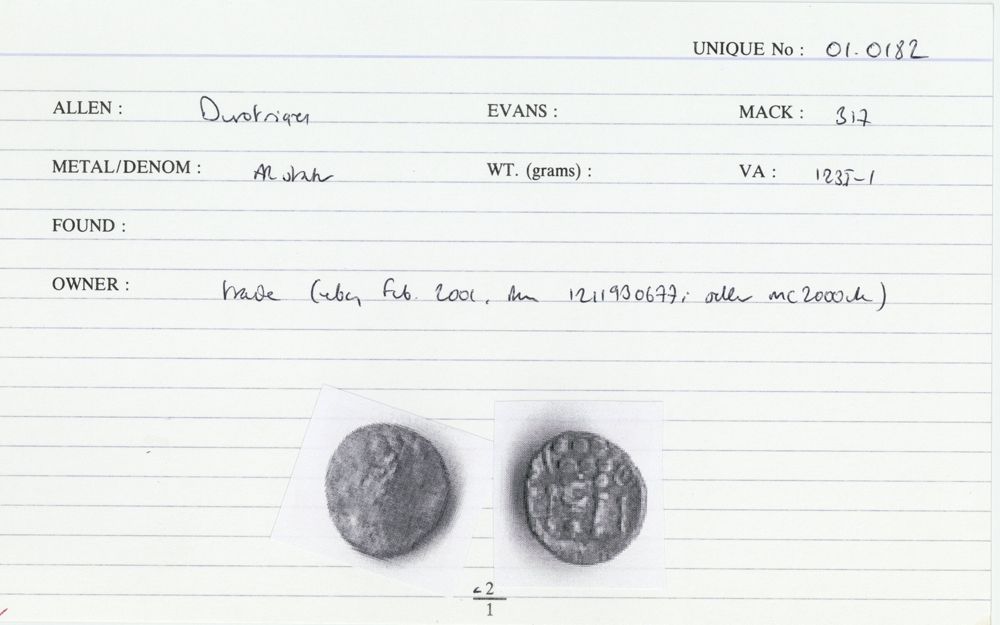 UNIQUE No : 01.0182
ALLEN : Durotriges EVANS : MACK : 317
METAL/DENOM : AR stater WT. (grams) : VA : 1235-1
FOUND :
OWNER : trade (ebay, Feb. 2001, item 1211930677; seller mc2000uk)
c2
1